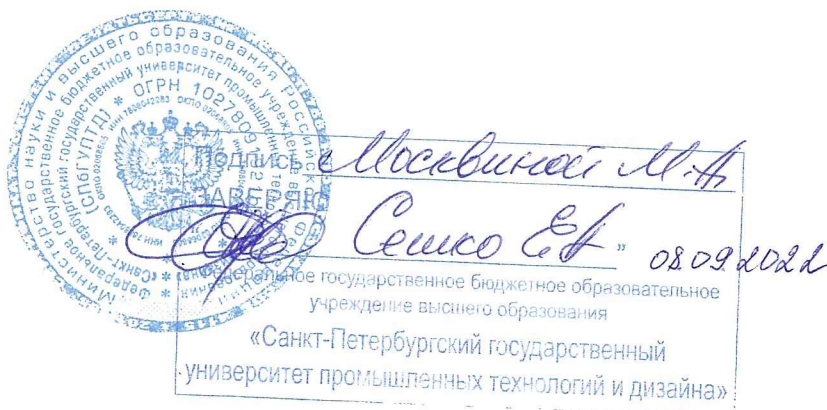 Министерство науки и высшего образования Российской
Федеральное государственное бюджетное образовательное учреждение
«Санкт-Петербургский государственный университет промышленных
(СПбГУПТД) * ОГРН
Подпись Москвиной М.А.
ЗАВЕРЯЮ
Сешко Е.А. " 08.09.2022
Федеральное государственное бюджетное образовательное
учреждение высшего образования
«Санкт-Петербургский государственный
университет промышленных технологий и дизайна»